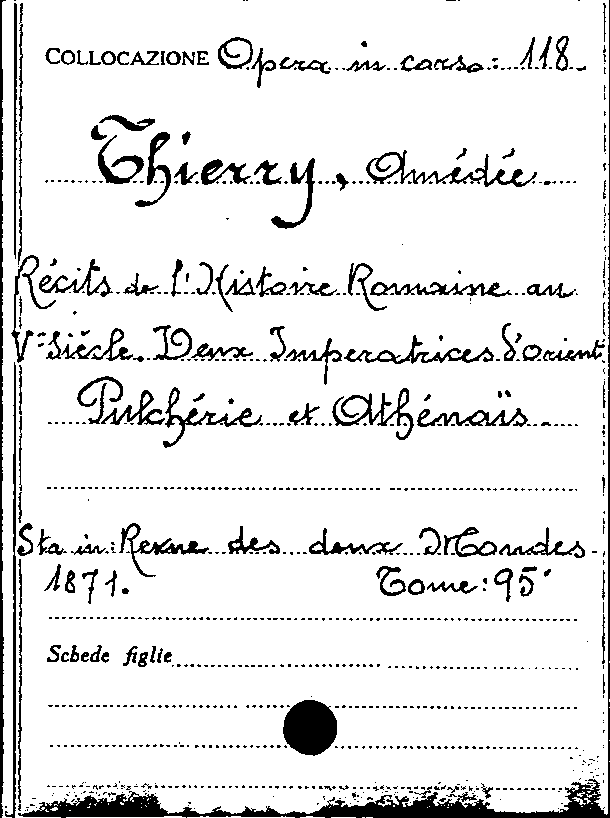 COLLOCAZIONE Opera in corso: 118.
Thierry, Amédée.
Récits de l'Histoire Romaine au
Ve Siécle. Deux Imperatrices d'orient
Pulchérie et Athénaïs.
Sta in: Revue des deux Mondes.
1871. Tome: 95°
Schede figlie